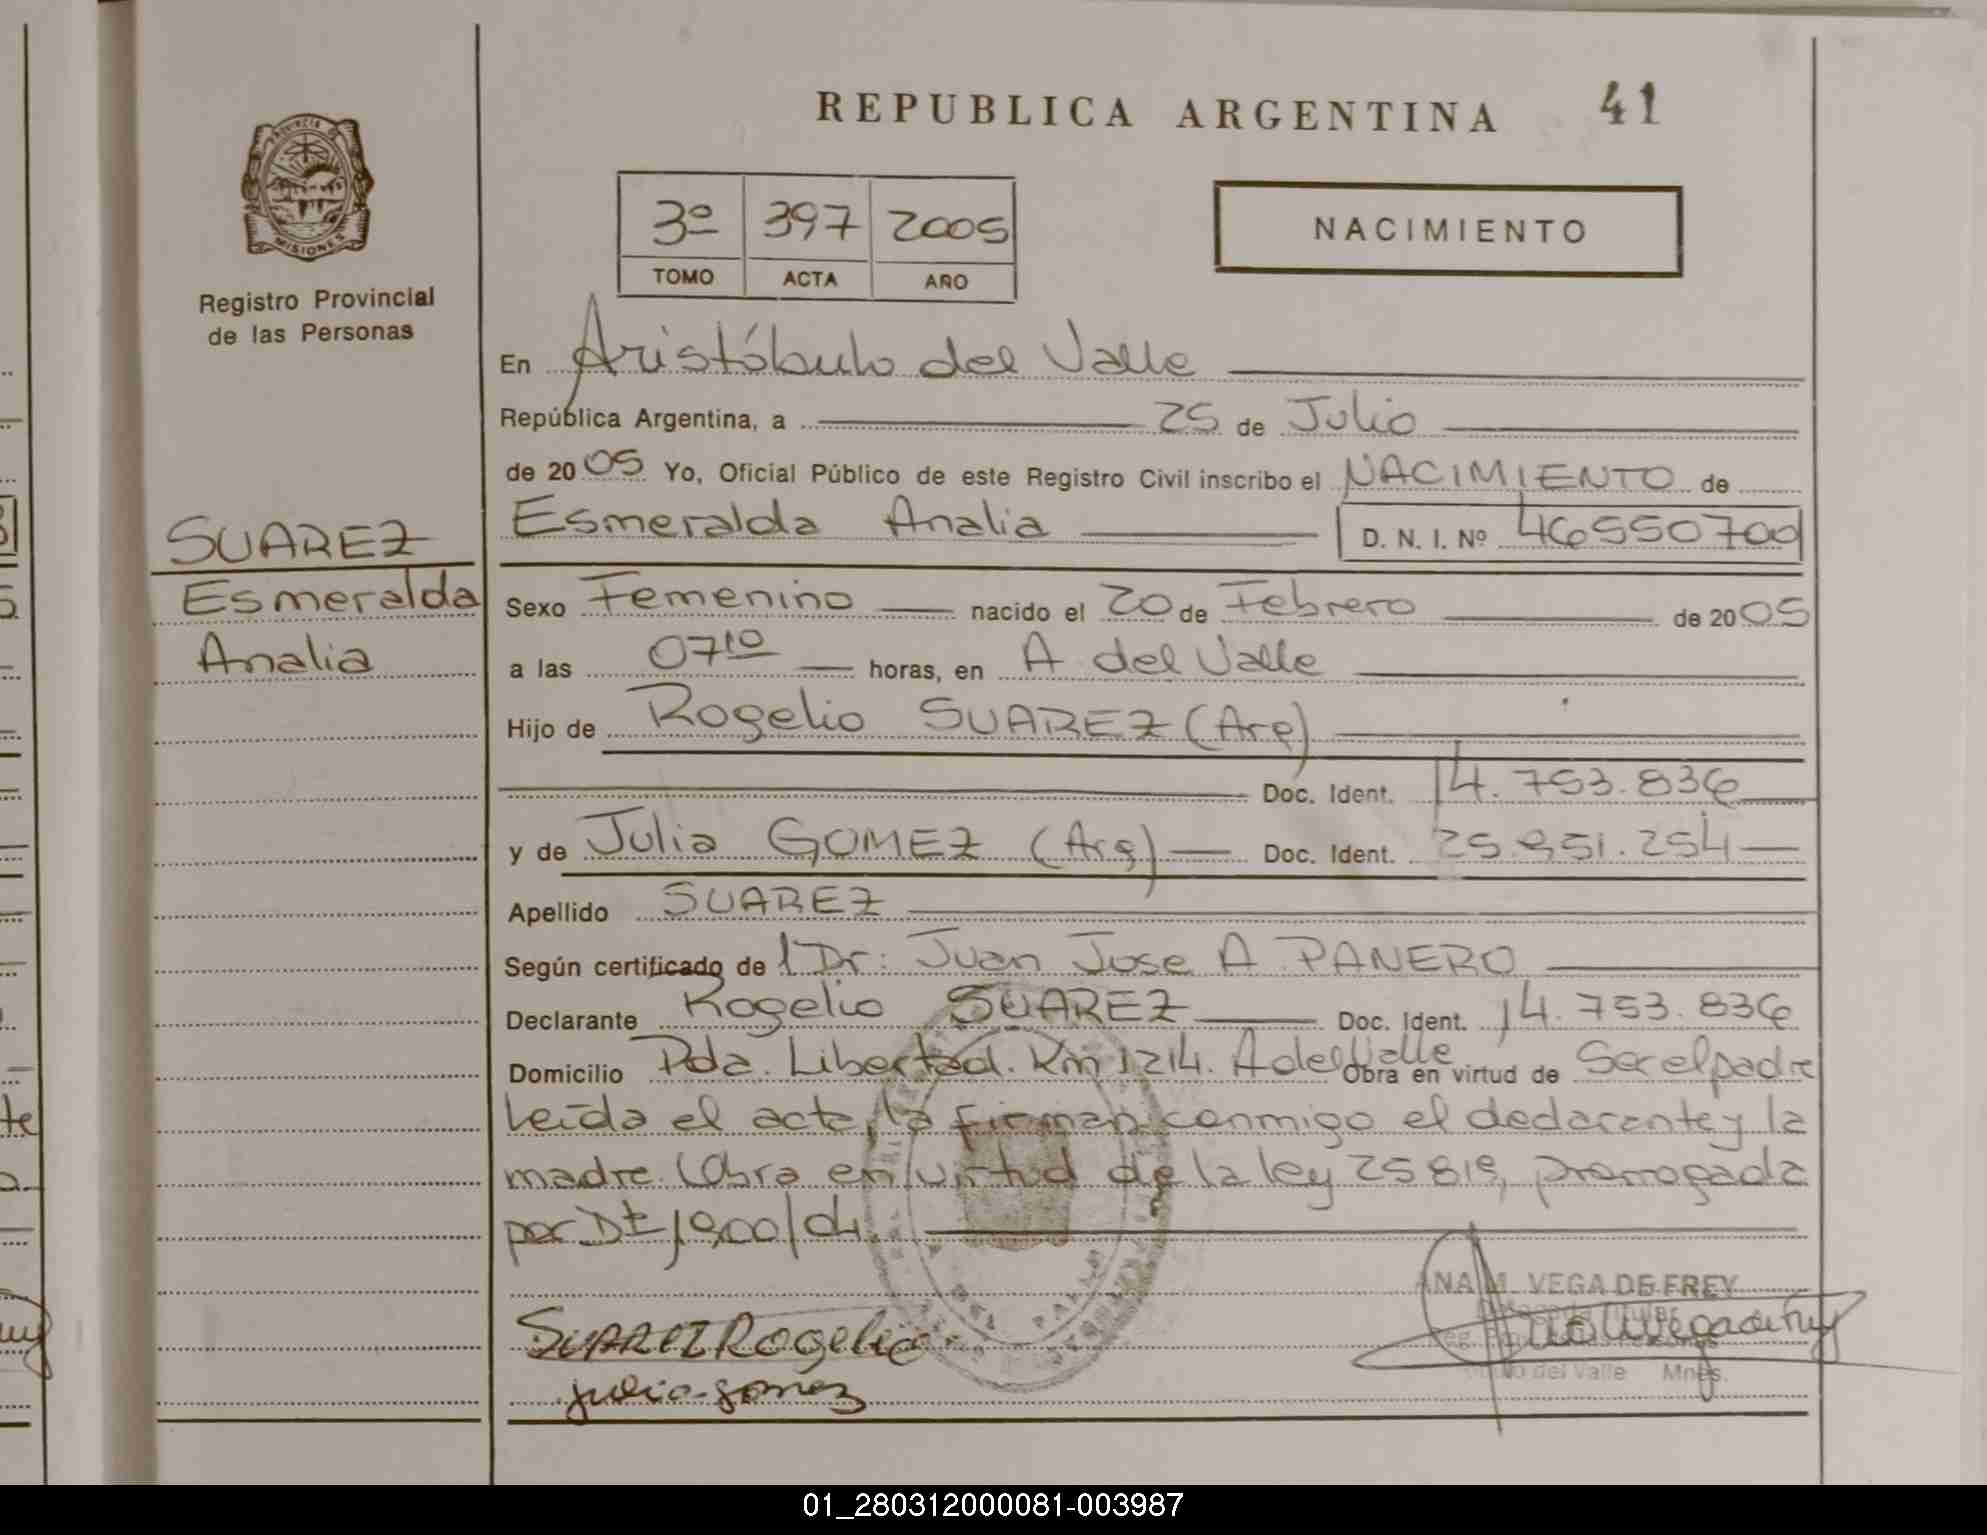 REPUBLICA ARGENTINA 41
PROVINCIA DE
MISIONES
Registro Provincial
de las Personas
3º 397 2005
TOMO ACTA AÑO
NACIMIENTO
SUAREZ
Esmeralda
Analia
En Aristóbulo del Valle
República Argentina, a 25 de Julio
de 2005 Yo, Oficial Público de este Registro Civil inscribo el NACIMIENTO de
Esmeralda Analia D. N. I. Nº 46550700
Sexo Femenino nacido el 20 de Febrero de 2005
a las 07 10 horas, en A del Valle
Hijo de Rogelio SUAREZ (Arg)
Doc. Ident. 14.753.836
y de Julia GOMEZ (Arg) Doc. Ident. 25.951.254
Apellido SUAREZ
Según certificado de l Dr: Juan Jose A PANERO
Declarante Rogelio SUAREZ Doc. Ident. 14.753.836
Domicilio Pda. Libertad. Km 1214. A del Valle Obra en virtud de Ser el padre
Leída el acta, la firman conmigo el declarante y la
madre. Obra en virtud de la ley 25819, prorrogada
por Dt 1900/04.
ANA M. VEGA DE FREY
SUAREZ Rogelio
del Valle Mnes.
julia gomez
01_280312000081-003987